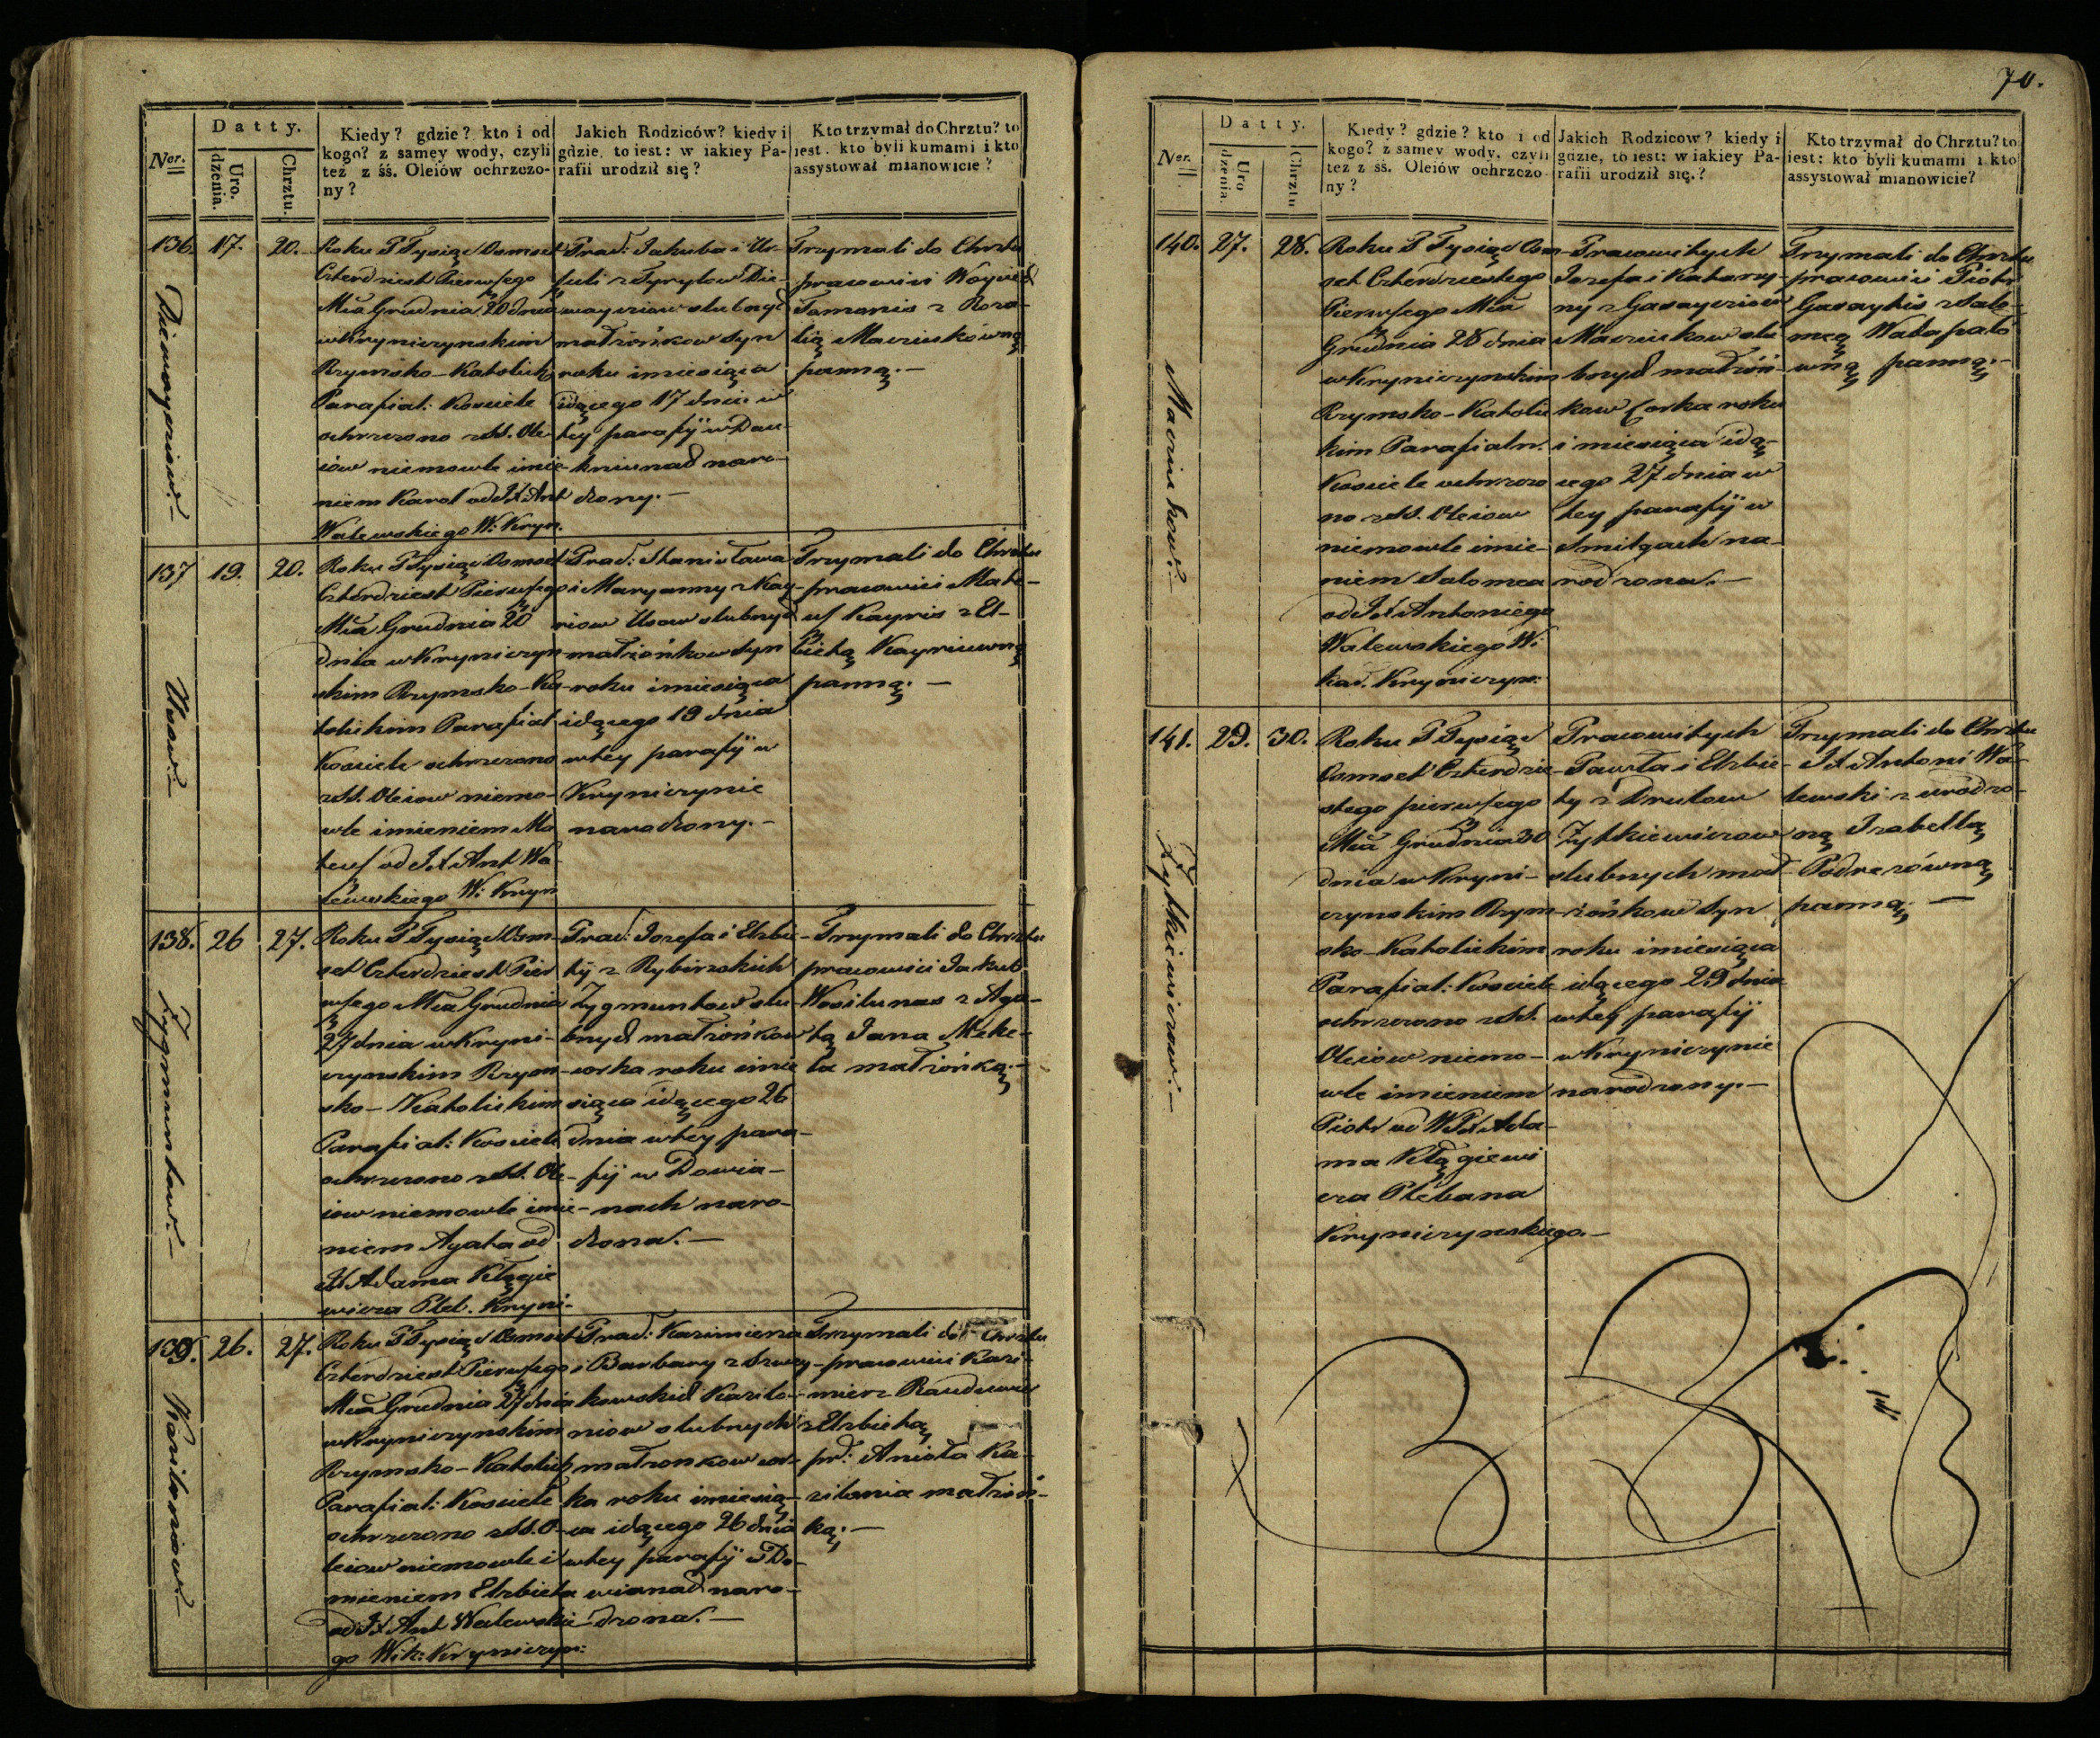 Datty.
Ner.
Uro.
dzenia.
Chrztu.
Kiedy? gdzie? kto i od
kogo? z samey wody, czyli
też z śś. Oleiów ochrzczo-
ny?
Jakich Rodziców? kiedy i
gdzie, to iest: w iakiey Pa-
rafii urodził się?
Kto trzymał do Chrztu? to
iest. kto byli kumami i kto
assystował mianowicie?
136. 17. 20.
Roku P Tysiąc Osmset
Czterdziest Pierwszego
Mca Grudnia 20 dnia
w Kryniczynskim
Rzymsko-Katolick
Parafial: Kosciele
ochrzczono z SS. Ole-
iow niemowle imie-
niem Karol od JX Ant
Walewskiego W: Kryn.
Prac: Jakuba i Ur-
szuli z
małżonkow syn
roku i miesiąca
idącego 17 dnia w
tey parafij w Dau-
kniunach naro-
dzony.-
Trzymali do Chrztu
pracowici Woyciech
Tamanis z Roza-
lią Maciukówną
panną.-
137 19. 20.
Usow.-
Roku P Tysiąc Osmset
Czterdziest Pierwszego
Mca Grudnia 20
dnia w Kryniczyn-
skim Rzymsko-Ka-
tolickim Parafial
Kosciele ochrzczono
z SS. Oleiow niemo-
wle imieniem Ma
teusz od JX Ant Wa
lewskiego W: Kryn
Prac: Stanisława
i Maryanny z Kay-
riow Usow slubnych
małżonkow syn
roku i miesiąca
idącego 19 dnia
w tey parafij w
Kryniczynie
narodzony.-
Trzymali do Chrztu
pracowici Mate-
usz Kayris z El-
bietą Kayriuwną
panną.-
138. 26 27.
Zygmuntow.-
Roku P Tysiąc Osm-
set Czterdziest Pier
wszego Mca Grudnia
27 dnia w Kryni-
czynskim Rzym-
sko-Katolickim
Parafial: Kosciele
ochrzczono z SS. Ole-
iow niemowle imie-
niem Agata od
JX Adama Kłągie
wicza Pleb. Kryni-
Prac: Jozefa i Elzbie-
ty z Rybinskich
Zygmuntow slu-
bnych małżonkow
corka roku i mie
siąca idącego 26
dnia w tey para-
fij w Dowia-
nach naro-
dzona.-
Trzymali do Chrztu
pracowici Jakub
Wosilunas z Aga-
tą Jana Meke-
la małżonką.-
139. 26. 27.
Kaziloniow.-
Roku P Tysiąc Osmset
Czterdziest Pierwszego
Mca Grudnia 27 dnia
w Kryniczynskim
Rzymsko-Katolick
Parafial: Kosciele
ochrzczono z SS. O-
leiow niemowle i
mieniem Elzbieta
od JX Ant Walewskie
go Wik: Kryniczyn:
Prac: Kazimierza
i Barbary z
Kazilo-
niow slubnych
małżonkow cor-
ka roku i miesią-
ca idącego 26 dnia
w tey parafij w Do-
wianach naro-
dzona.-
Trzymali do Chrztu
pracowici Kazi-
mierz
z Elzbietą
pr: Anioła Ka-
zilonia małżon-
ką.-
70.
Datty.
Ner.
Uro
dzenia.
Chrztu
Kiedy? gdzie? kto i od
kogo? z samey wody, czyli
też z śś. Oleiów ochrzczo
ny?
Jakich Rodziców? kiedy i
gdzie, to iest: w iakiey Pa-
rafii urodził się.?
Kto trzymał do Chrztu? to
iest: kto byli kumami i kto
assystował mianowicie?
140. 27. 28.
Maciukow.-
Roku P Tysiąc Osm
set Czterdziestego
Pierwszego Mca
Grudnia 28 dnia
w Kryniczynskim
Rzymsko-Katolic
kim Parafialn.
Kosciele ochrzczo
no z SS. Oleiow
niemowle imie-
niem Salomea
od JX Antoniego
Walewskiego W:
Kryniczyn:
Pracowitych
Jozefa i Katarzy-
ny z
Maciukow slu
bnych małżon-
kow Corka roku
i miesiąca idą-
cego 27 dnia w
tey parafij w
Smilgach na-
rodzona.-
Trzymali do Chrztu
pracowici Piotr
Gasaytis z Salo-
meą
panną.-
141. 29. 30.
Zytkiewiczow.-
Roku P Tysiąc
Osmset Czterdzie-
stego pierwszego
Mca Grudnia 30
dnia w Kryni-
czynskim Rzym-
sko-Katolickim
Parafial: Kosciele
ochrzczono z SS.
Oleiow niemo-
wle imieniem
Piotr od WJX Ada-
ma Kłągiewi
cza Plebana
Kryniczynskiego.-
Pracowitych
Pawła i Elzbie-
ty z Drutow
Zytkiewiczow
slubnych mał-
żonkow syn
roku i miesiąca
idącego 29 dnia
w tey parafij
w Kryniczynie
narodzony.-
Trzymali do Chrztu
JX Antoni Wa-
lewski z urodzo-
ną Izabellą
Podrezówną
panną.-